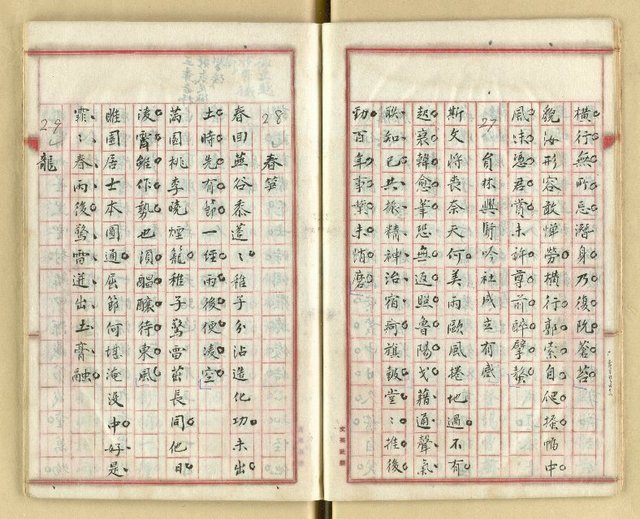 橫行無所忌潛身乃復阮蒼苔
貌汝形容敢憚勞橫行郭索自爬搔啗中
風味恣君嘗未許尊前醉擘螯
27 員林興賢吟社成立有感
斯文將喪奈天何美雨歐風捲地過不有
起衰韓愈筆恐無返照魯陽戈藉通聲氣
聯知己共振精神治宿痾旗鼓堂〻推後
勁百年事業未消磨
28 春筍
春回燕谷黍蓬〻稚子分沾造化功未出
土時先有節一經雨後便凌空
萬園桃李曉煙籠稚子驚雷茁長同他日
淩霄雖作勢也須醞釀待東風
睢園居士本圓通屈節何堪淹沒中好是
霏〻春雨後驚雷迸出土膏融
29 龍